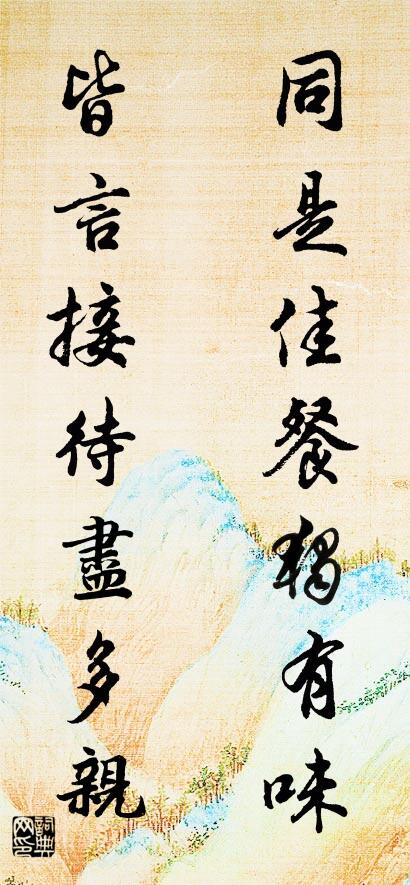 同是佳餐獨有味
皆言接待盡多親
詞典網印